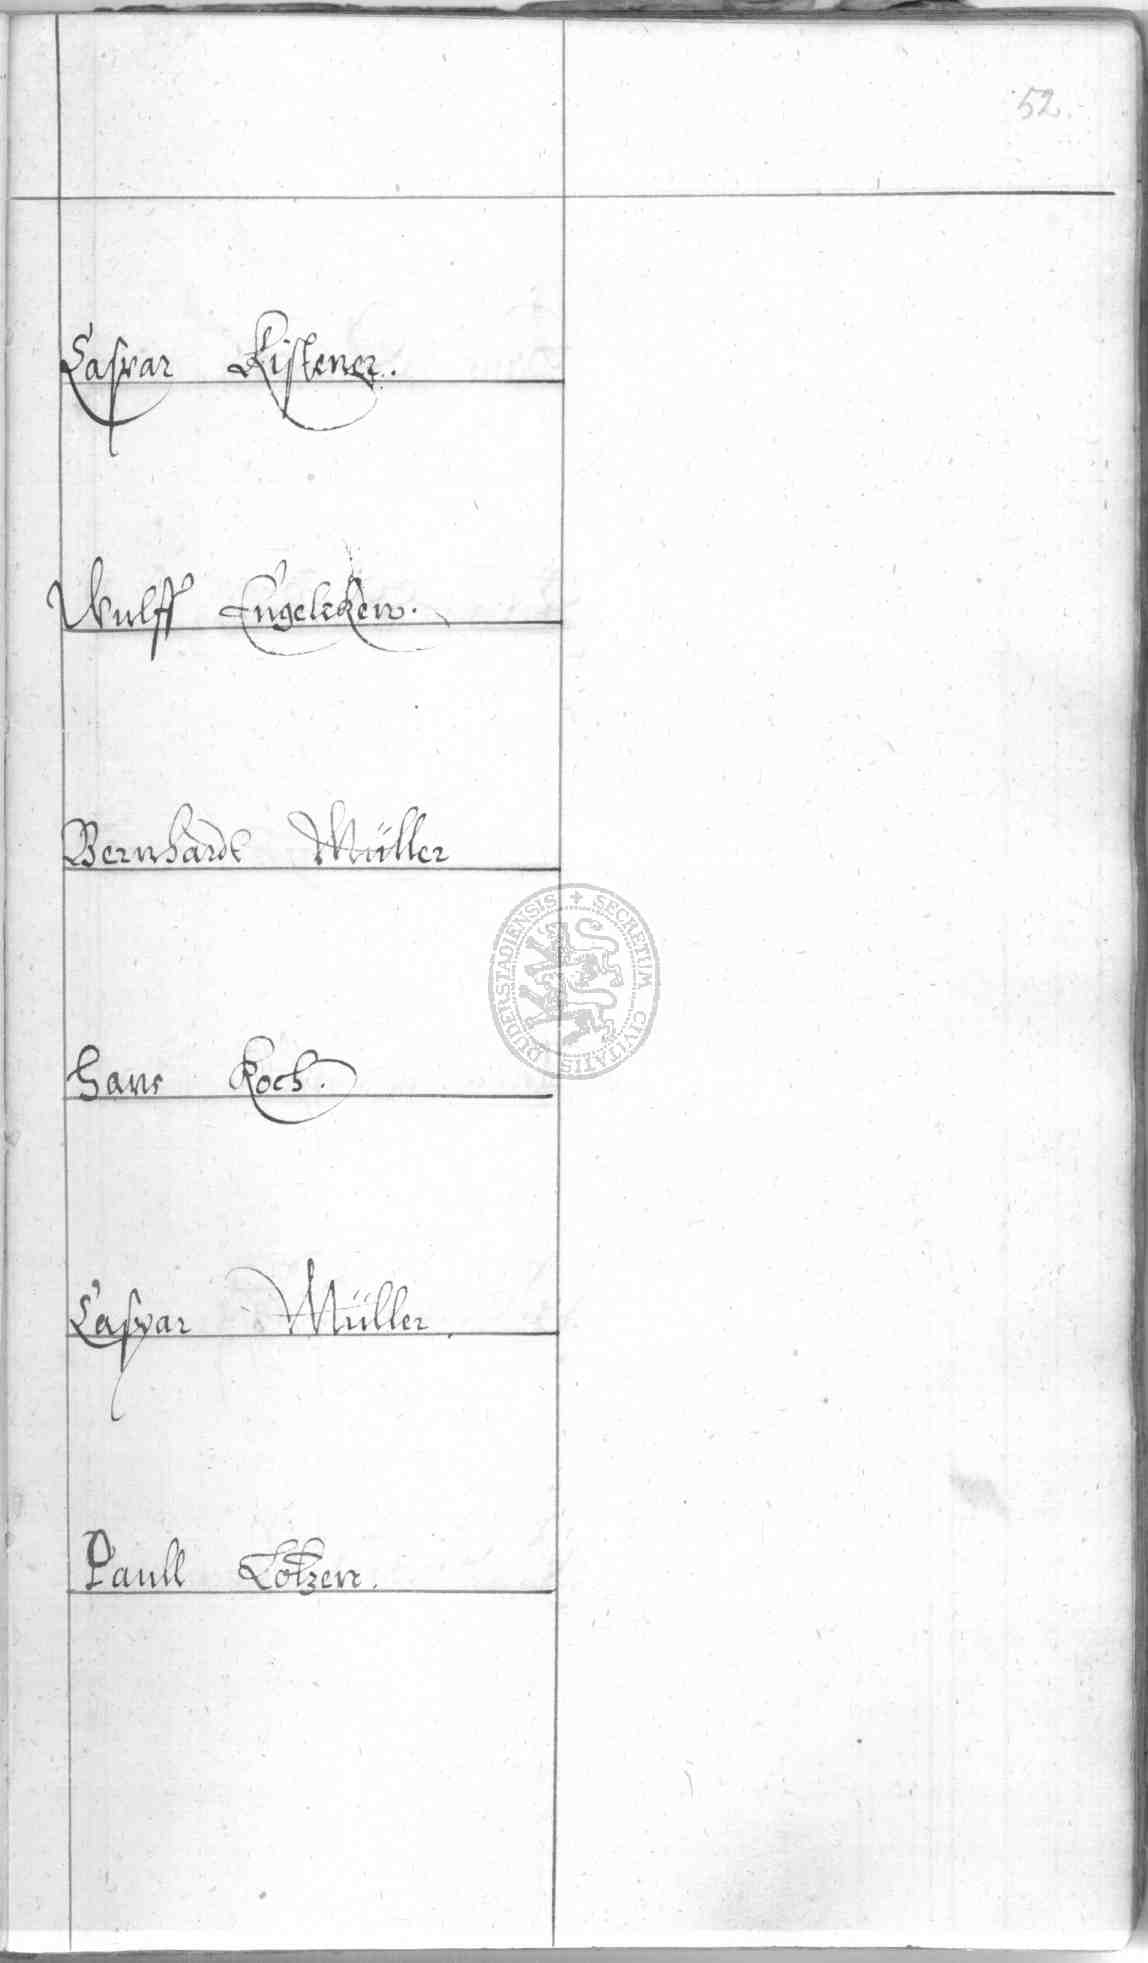 52.
Caspar Kistener.
Wulff Engeleken.
Bernhardt Müller
Hans Koch.
Caspar Müller.
Paull
SECRETUM CIVITATIS DUDERSTADIENSIS